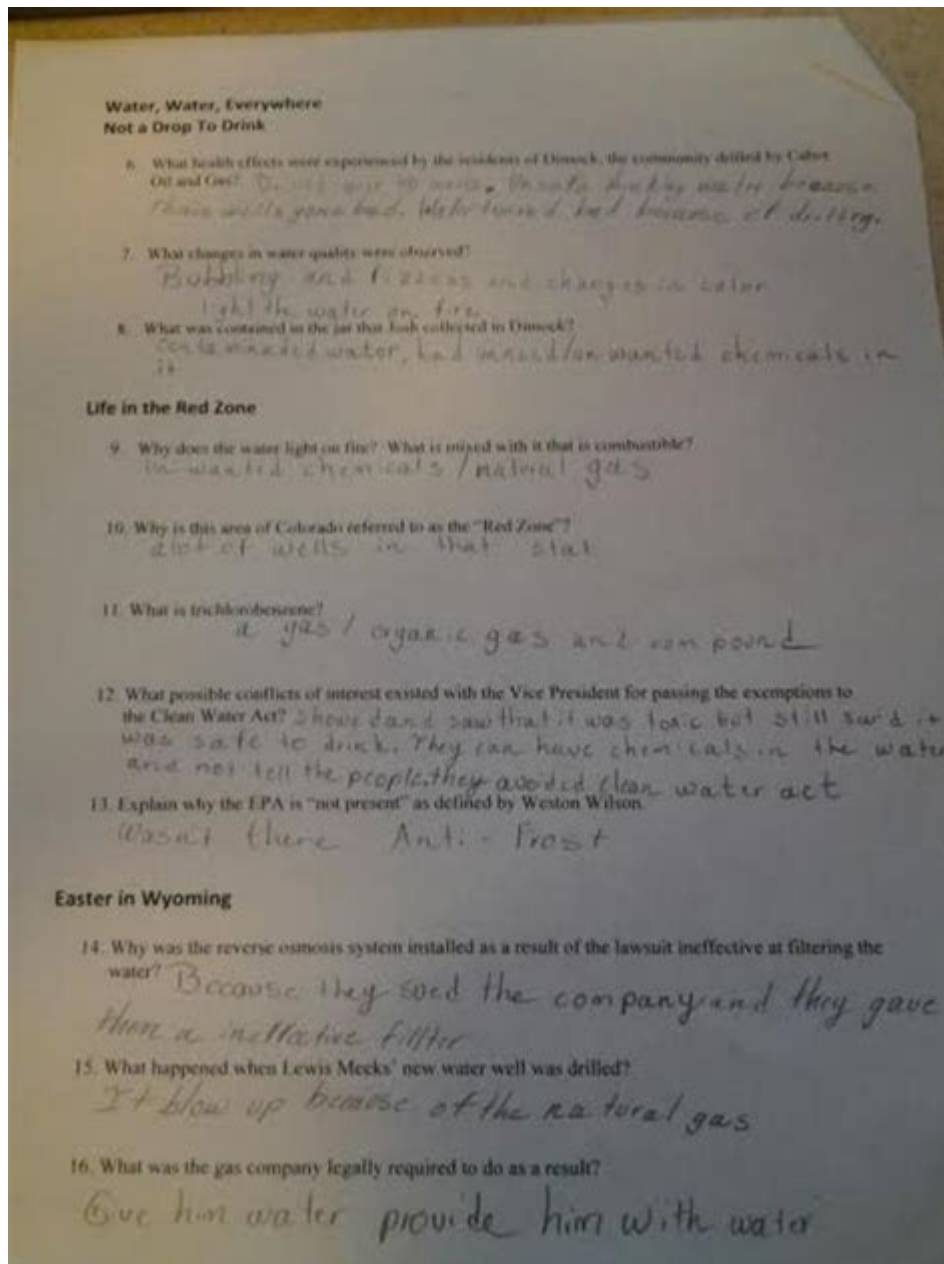 Water, Water, Everywhere
Not a Drop To Drink
6. What health effects were experienced by the residents of Dimock, the community drilled by Cabot
Oil and Gas? Unsafe drinking water because
their wells gone bad. Water turned bad because of drilling.
7. What changes in water quality were observed?
Bubbling and fizzens and changes in color
light the water on fire
8. What was contained in the jar that Josh collected in Dimock?
contaminated water, had unwanted chemicals in
it
Life in the Red Zone
9. Why does the water light on fire? What is mixed with it that is combustible?
un wanted chemicals / natural gas
10. Why is this area of Colorado referred to as the "Red Zone"?
alot of wells in that stat
11. What is trichlorobenzene?
a gas / organic gas and compound
12. What possible conflicts of interest existed with the Vice President for passing the exemptions to
the Clean Water Act? Showed and saw that it was toxic but still said it
was safe to drink. They can have chemicals in the water
and not tell the people. they avoided clean water act
13. Explain why the EPA is "not present" as defined by Weston Wilson.
Wasn't there Anti - Frost
Easter in Wyoming
14. Why was the reverse osmosis system installed as a result of the lawsuit ineffective at filtering the
water? Because they sued the company and they gave
them a ineffective fillter
15. What happened when Lewis Meeks' new water well was drilled?
It blow up because of the natural gas
16. What was the gas company legally required to do as a result?
Give him water provide him with water